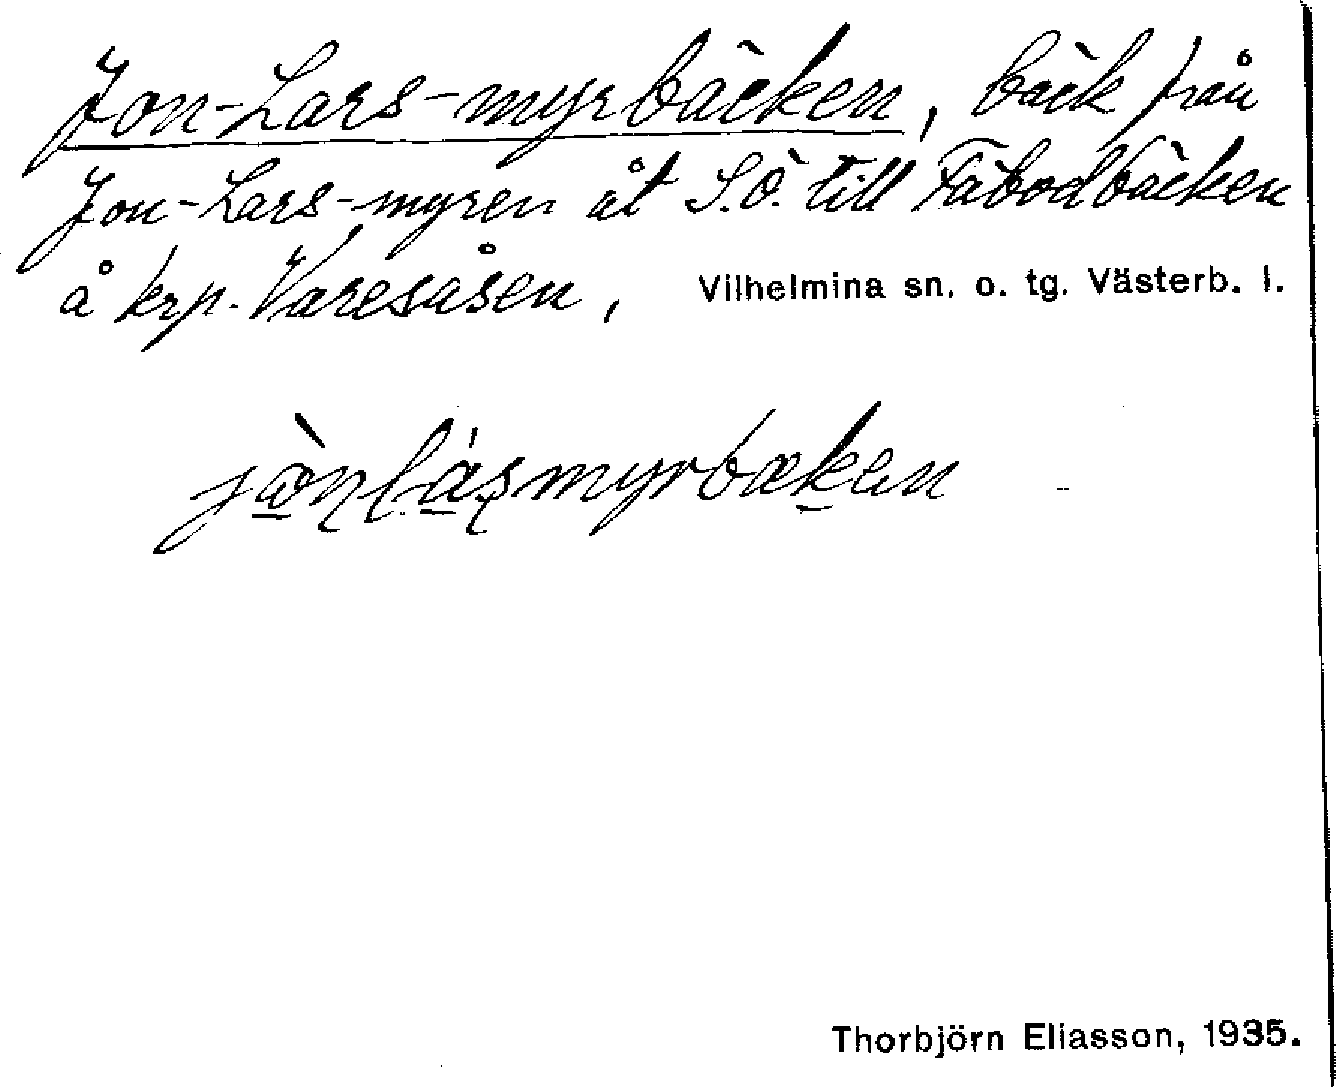 Jon-Lars-myrbäcken, bäck från
Jon-Lars-myren åt S.Ö. till Fäbodbäcken
å krp. Varesåsen, Vilhelmina sn. o. tg. Västerb. l.
Thorbjörn Eliasson, 1935.